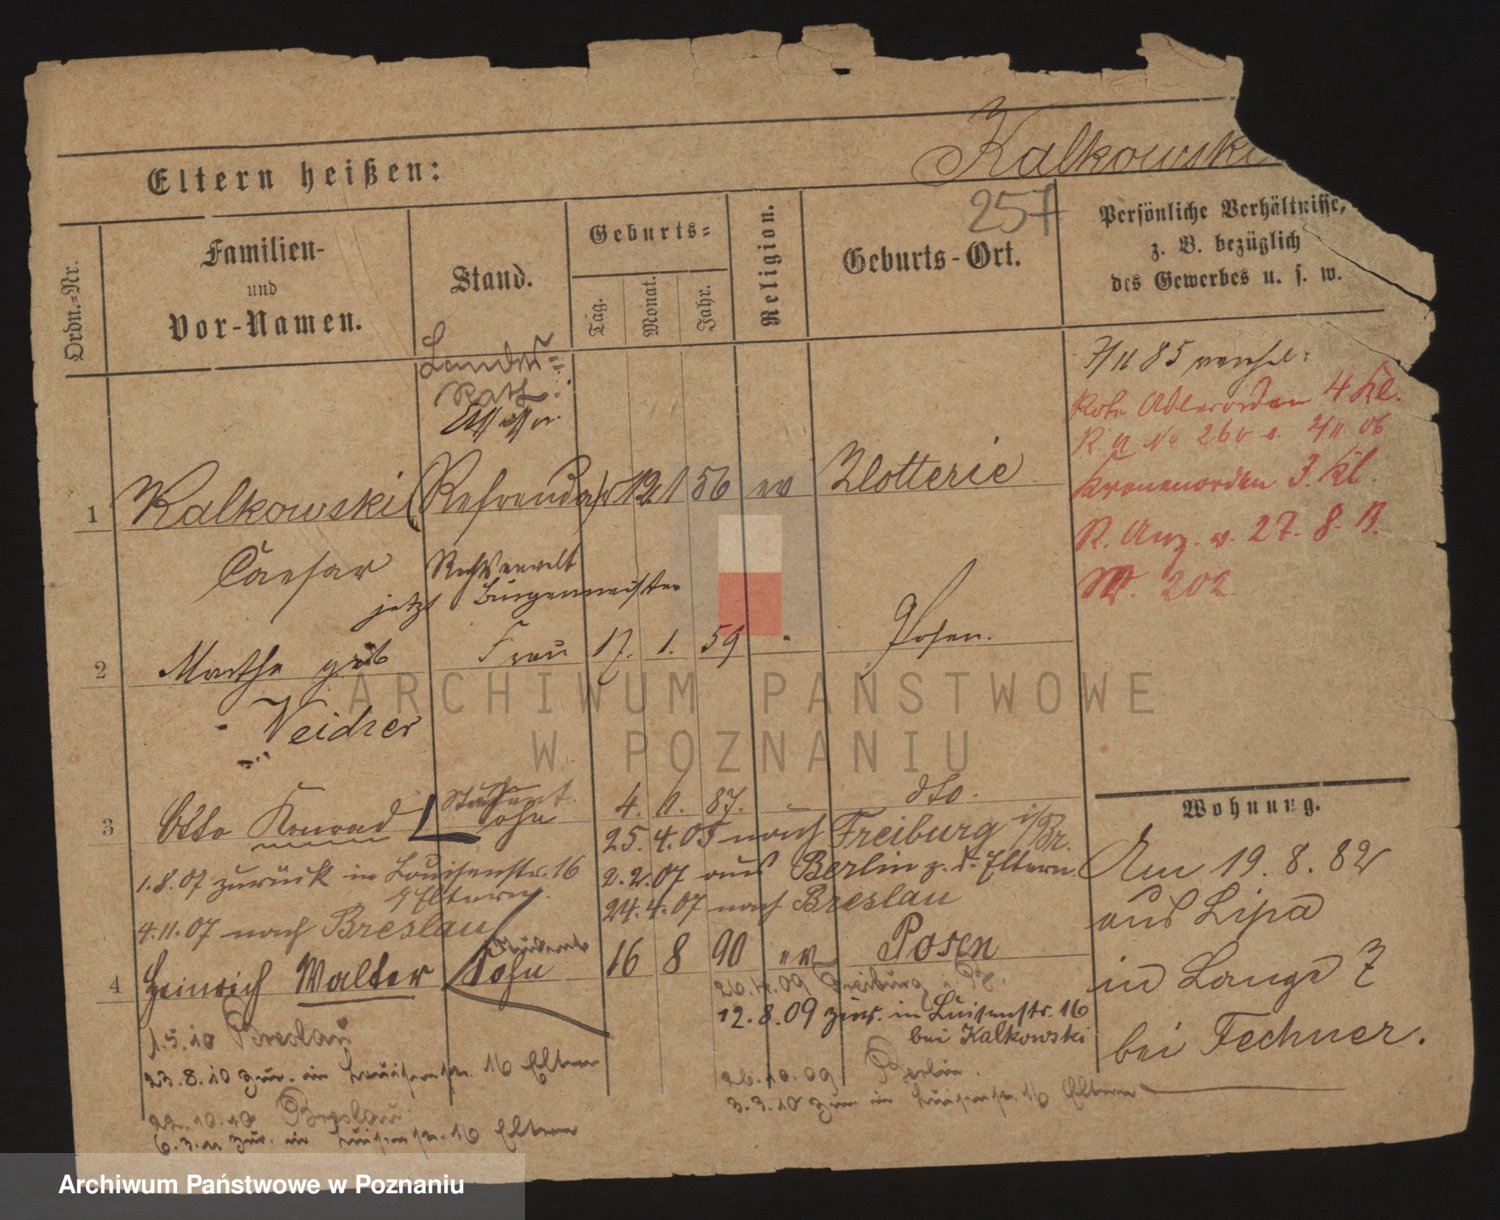 Kalkowski
Eltern heißen:
257
Ordn.-Nr.
Familien-
und
Vor-Namen.
Stand.
Geburts-
Tag.
Monat.
Jahr.
Religion.
Geburts-Ort.
Persönliche Verhältnisse,
z. B. bezüglich
des Gewerbes u. s. w.
Landes-
Rath
Assessor
7/11 85
Rote Adlerorden 4 Kl.
Kronenorden 3. Kl.
R. Anz. v. 27. 8. 13.
Nr. 202
1 Kalkowski (Refrendar) 12 1 56 ev Zlotterie
Caesar Rechtsanwalt
jetzt Bürgermeister
2 Marthe geb Frau 17. 1. 59 " Posen.
Weidner
3 Otto Konrad Student. Sohn 4. 6. 87. - dto.
25.4.05 nach Freiburg i/Br.
1.8.07 zurück in Louisenstr. 16 2.2.07 aus Berlin z. d. Eltern.
Eltern. 24.4.07 nach Breslau
4.11.07 nach Breslau
4 Heinrich Walter Student Sohn 16 8 90 ev Posen
26.4.09 Freiburg i. B.
12.8.09 zur. in Luisenstr. 16
bei Kalkowski
1.5.10 Breslau
23.8.10 zur. in Luisenstr. 16 Eltern
26.10.09 Berlin.
3.3.10 zur in Luisenstr. 16 Eltern
22.10.10 Breslau
6.3.11 zur. in Luisenstr. 16 Eltern
Wohnung.
Am 19. 8. 82
aus Lipa
in Lange 7
bei Fechner.
ARCHIWUM PAŃSTWOWE
W POZNANIU
Archiwum Państwowe w Poznaniu